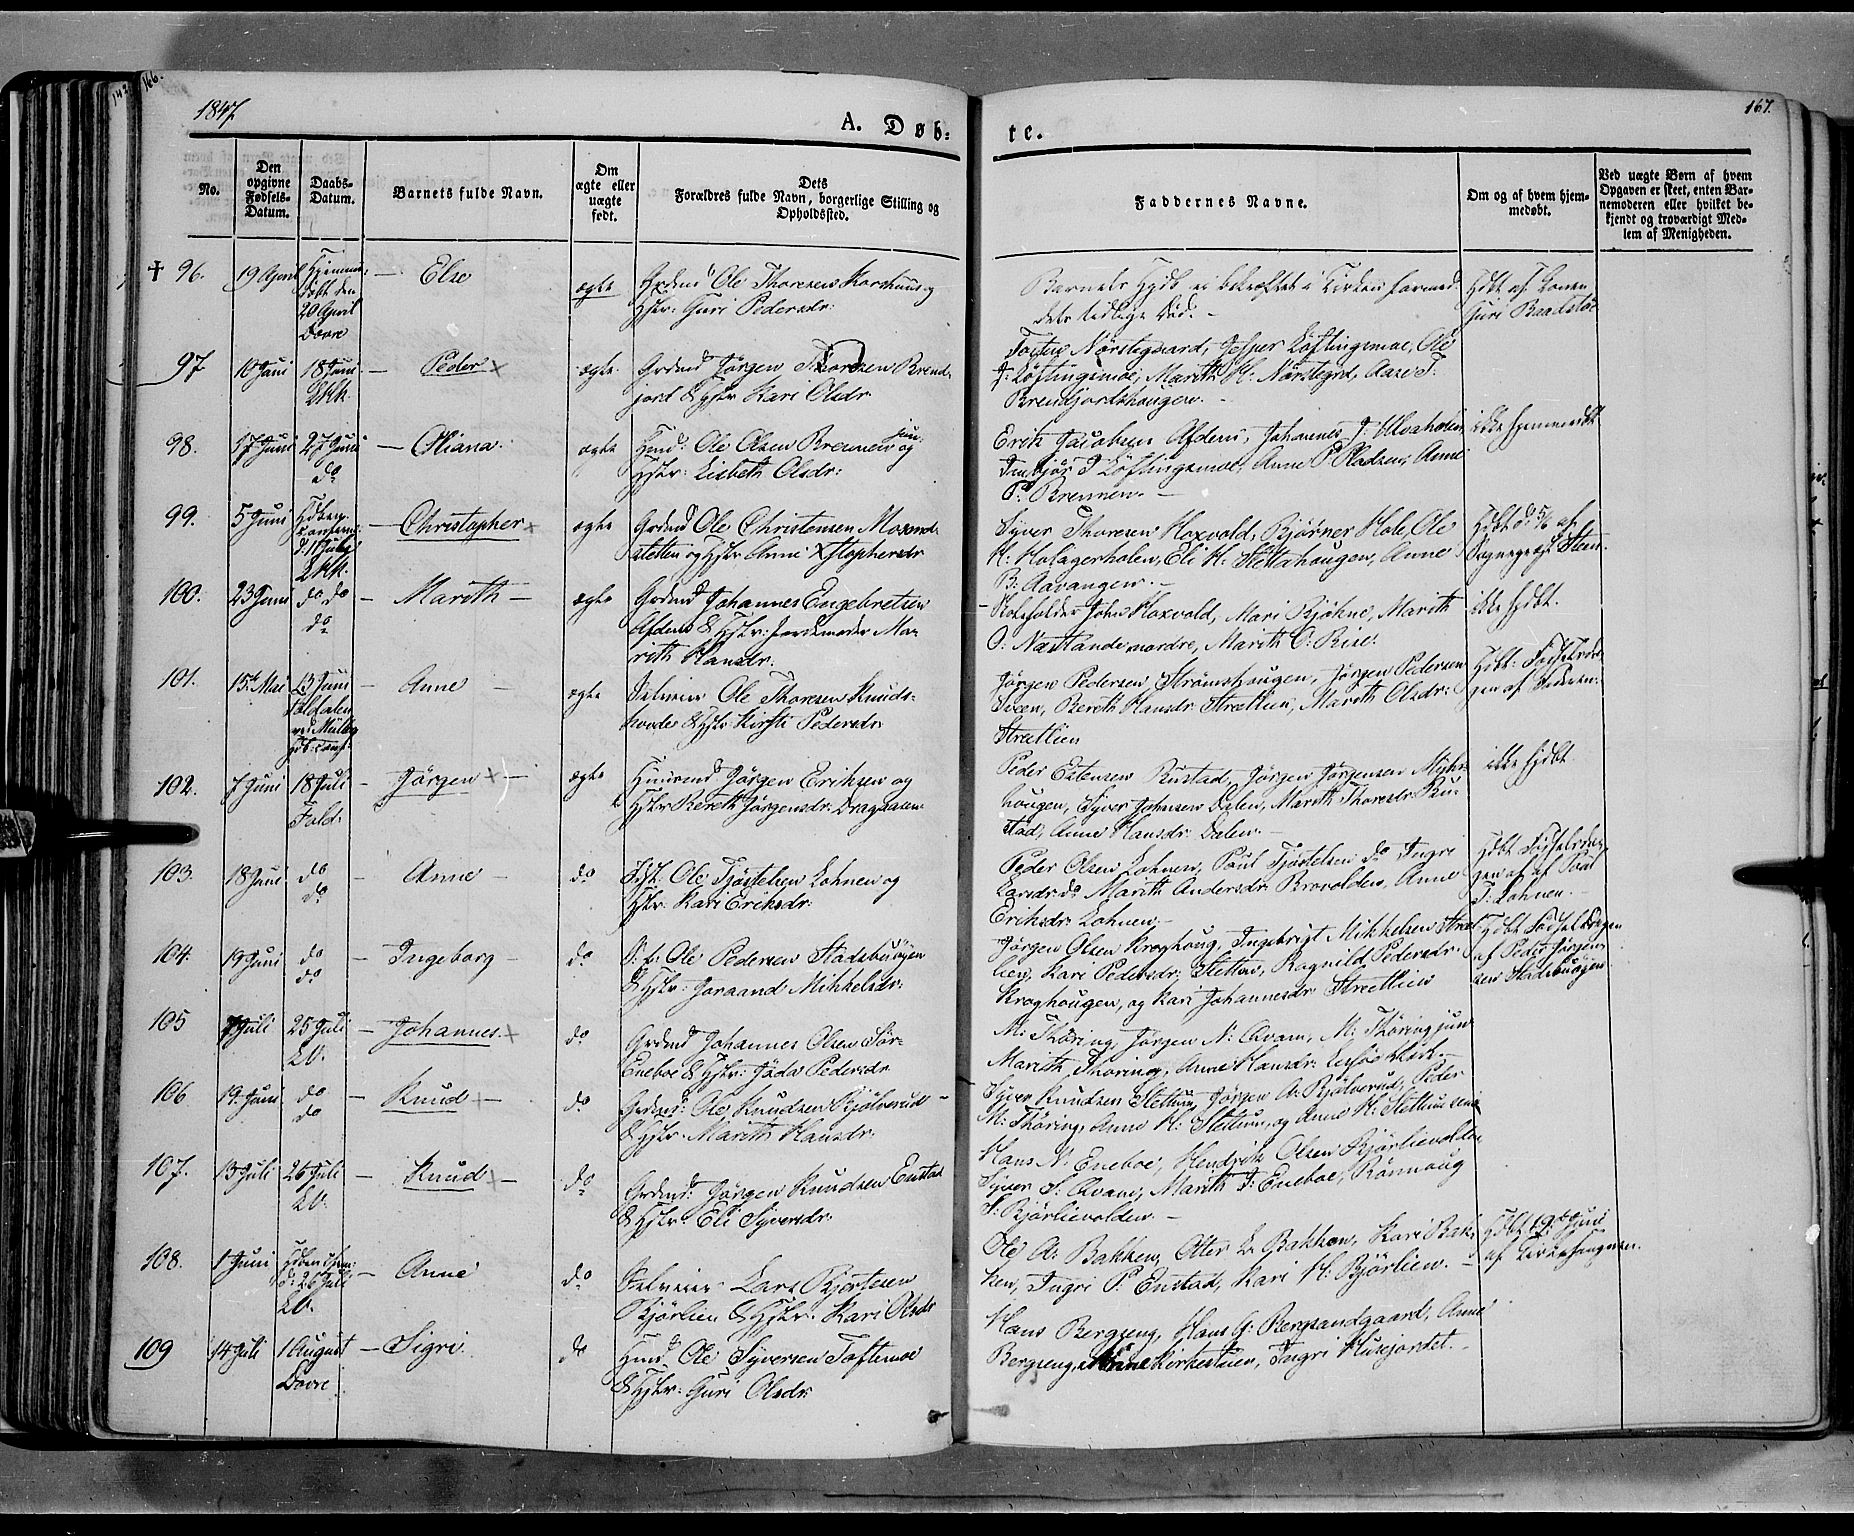 166.
1847
A. Døb:
te.
167.
No.
Den
opgivne
Fødsels-
Datum.
Daabs-
Datum.
Barnets fulde Navn.
Om
ægte eller
uægte
født.
Dets
Forældres fulde Navn, borgerlige Stilling og
Opholdssted.
Faddernes Navne.
Om og af hvem hjem-
medøbt.
Ved uægte Børn af hvem
Opgaven er skeet, enten Bar-
nemoderen eller hvilket be-
kjendt og troværdigt Med-
lem af Menigheden.
† 96.
19 April
døbt den
20 April
Dovre
Else
ægte
Grdmd Ole Thoresen
Hstr: Guri Pedersdr:
Barnets Hjdb er bekræftet i Kirken formed-
dets tidlige Død. -
Hdbt af Konen
Guri
97
10 Juni
18 Juni
Peder x
ægte
Grdmd Jørgen Thoresen Brend-
jord & Hstr Kari Olsdr
Nørstegaard, Jesper Løftingsmoe, Ole
J: Løftingsmoe, Marith H: Nørstegrd, Aase T.
Brendjordshougen. -
98.
17 Juni
27 Juni
do
Oliana.
ægte
Hmd: Ole Olsen Brennen jun: og
Hstr: Lisbeth Olsdr:
Erik Jacobsen Afdem, Johannes J: Ulvaholen,
J Løftingsmoe, Anne P. Pladsen, Anne
P: Brennen. -
ikke hjemmedbt
99.
5 Juni
d: 11 July
Christopher x
ægte
Grdmd Ole Christensen
og Hstr Anne Xstophersdr
Syver Thoresen Hoxvold, Bjørner Hole, Ole
H: Holagerholen, Eli H: Stettahougen, Anne
B: Aavangen. -
Hdbt d: 5/6 af
Sognepræst Steen.
100.
23 Juni
do do
do
Marith -
ægte
Grdmd Johannes Engebretsen
Afdem & Hstr: Jordemoder Ma-
rith Hansdr.
John Hoxvold, Mari Kjøhne, Marith
O: nordre, Marith O: Rise.
ikke hjdbt.
101.
15de Mai
13 Juni
Anne -
ægte
Ole Thoresen Knuds-
hoode & Hstr Kirsti Pedersdr
Jørgen Pedersen Strømshougen, Jørgen Pedersen
Sveen, Bereth Hansdr Strætlien, Marith Olsdr:
Strætlien
Hdbt: Fødselsda-
gen af
102.
7 Juni
18 Juli
Fold:
Jørgen x -
ægte
Huusmd Jørgen Eriksen og
Hstr Bereth Jørgensdr: Dragaasen
Peder Estensen Rustad, Jørgen Jørgensen
hougen, Syver Johnsen Dalen, Marith Thoresdr Ru-
stad, Anne Hansdr: Dalen. -
ikke hjdbt.
103.
18 Juni
do
do
Anne -
do
Ole Tjøstelsen Lohnen og
Hstr: Kari Eriksdr:
Peder Olsen Lohnen, Poul Tjøstelsen do Ingri
Larsdr: do Marith Andersdr: Brovolden, Anne
Eriksdr: Lohnen. -
Hdbt Fødselsda-
gen af Poul
T: Lohnen. -
104.
19 Juni
do
do
Ingeborg -
do
Ole Pedersen Stadsbuøyen
& Hstr: Joraand Mikkelsdr:
Jørgen Olsen Kroghoug, Ingebrigt Mikkelsen Stræt-
lien, Kari Pedersdr: Stetten, Ragnild Pedersdr.
Kroghougen, og Kari Johannesdr: Strætlien
Hdbt Fødselsdagen
af Peder Jørgen-
sen Stadsbuøjen
105
7 Juli
25 Juli
Johannes. x
do
Grdmd Johannes Olsen Sør-
Eneboe & Hstr: Jøda Pedersdr
M: Thøring, Jørgen N: Qvam, M: Thøring jun
Marith Thøring, Anne Hansdr:
106
19. Juni
do
do
Knud x -
do
Grdmd: Ole Knudsen Bjølverud
& Hstr: Marith Hansdr:
Syver Knudsen Stettum, Jørgen A. Bjølverud, Peder
M: Thøring, Anne H: Stettum, og Anne K: Stettum
107.
13 Juli
26 Juli
Knud x -
do
Grdmd: Jørgen Knudsen Enstad
& Hstr: Eli Syversdr:
Hans N: Eneboe, Hendrik Olsen Bjørlievolden,
Syver S: Qvam, Marith J: Eneboe, Rønnaug
S: Bjørlievolden. -
108.
1 Juni
d: 26 Juli
Anne
do
Lars Bjørtsen
Bjørlien & Hstr: Kari Olsdr
Ole A: Bakken, Otter L: Bakken, Kari Bak-
ken, Ingri P: Enstad, Kari H: Bjørlien. -
Hdbt 19de Juni
af Kirkesangeren.
109
14 Juli
1 August
Dovre
Sigri
do
Hmd: Ole Syversen Toftemoe
& Hstr: Guri Olsdr:
Hans Bergseng, Hans G: Bergsandgaard, Anne
Bergseng, Anne Kirkestuen, Ingri Husejordet. -